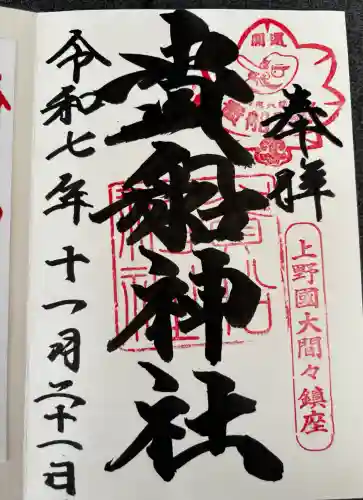 奉拝
上野國大間々鎮座
開運
貴船神社
令和七年十一月二十一日